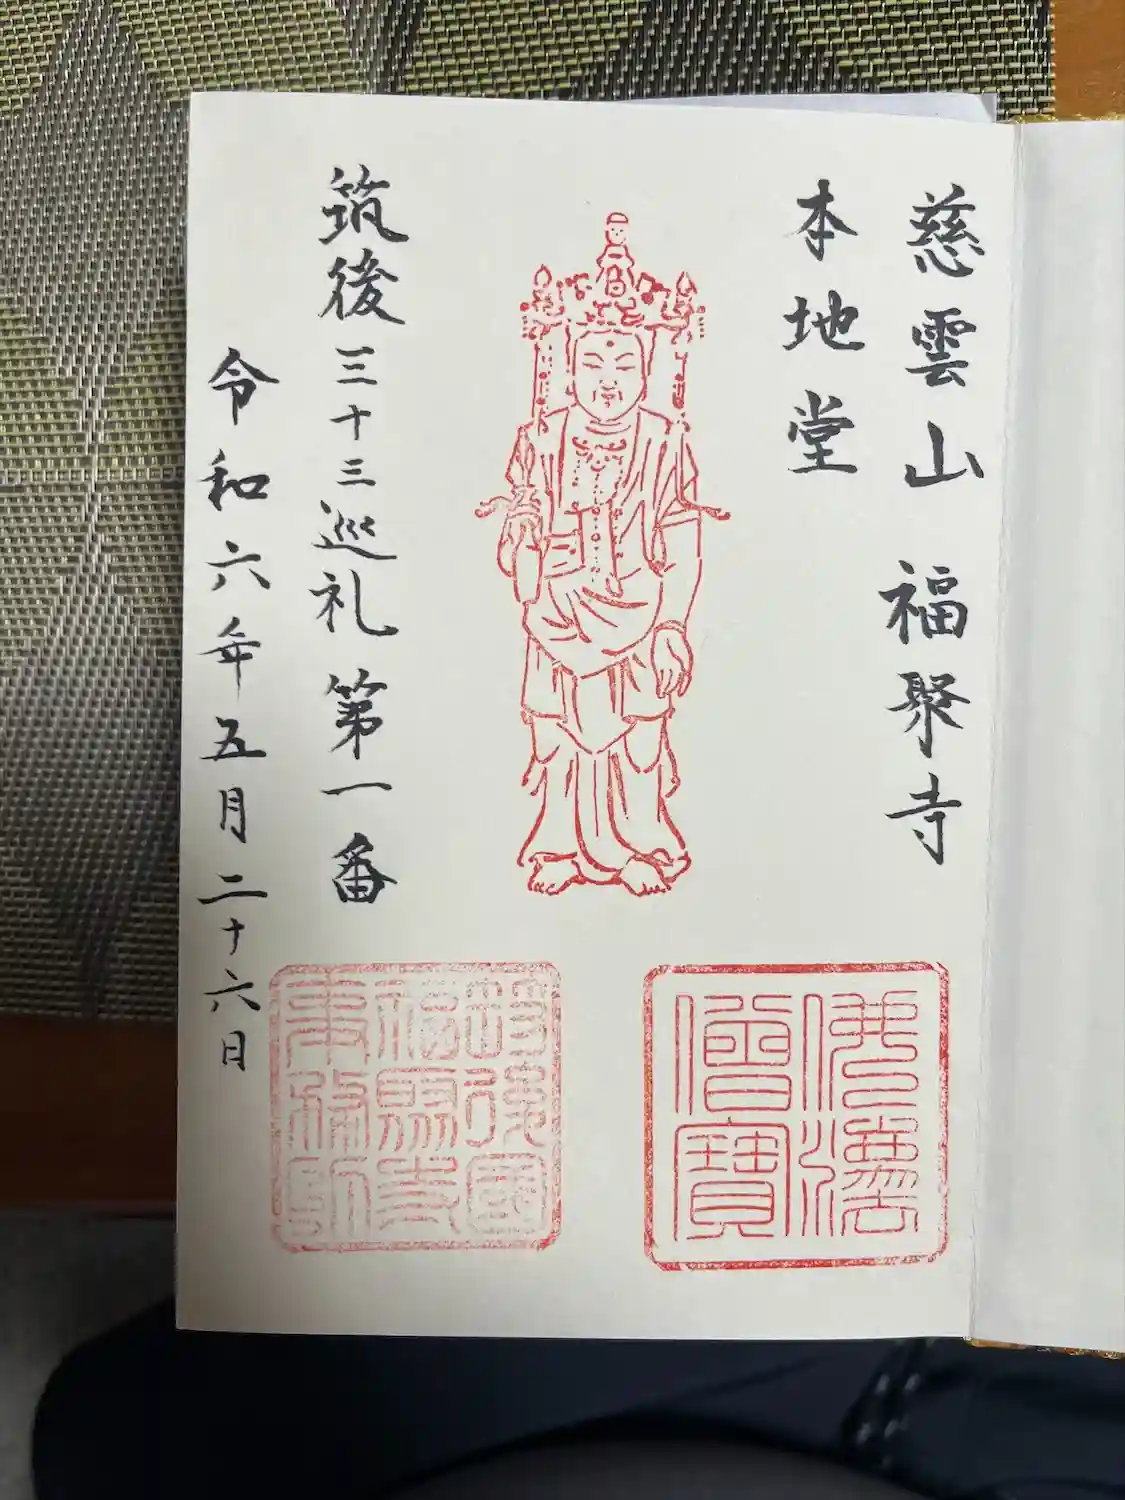 慈雲山 福聚寺
本地堂
筑後三十三巡礼 第一番
令和六年五月二十六日
佛法
僧寶